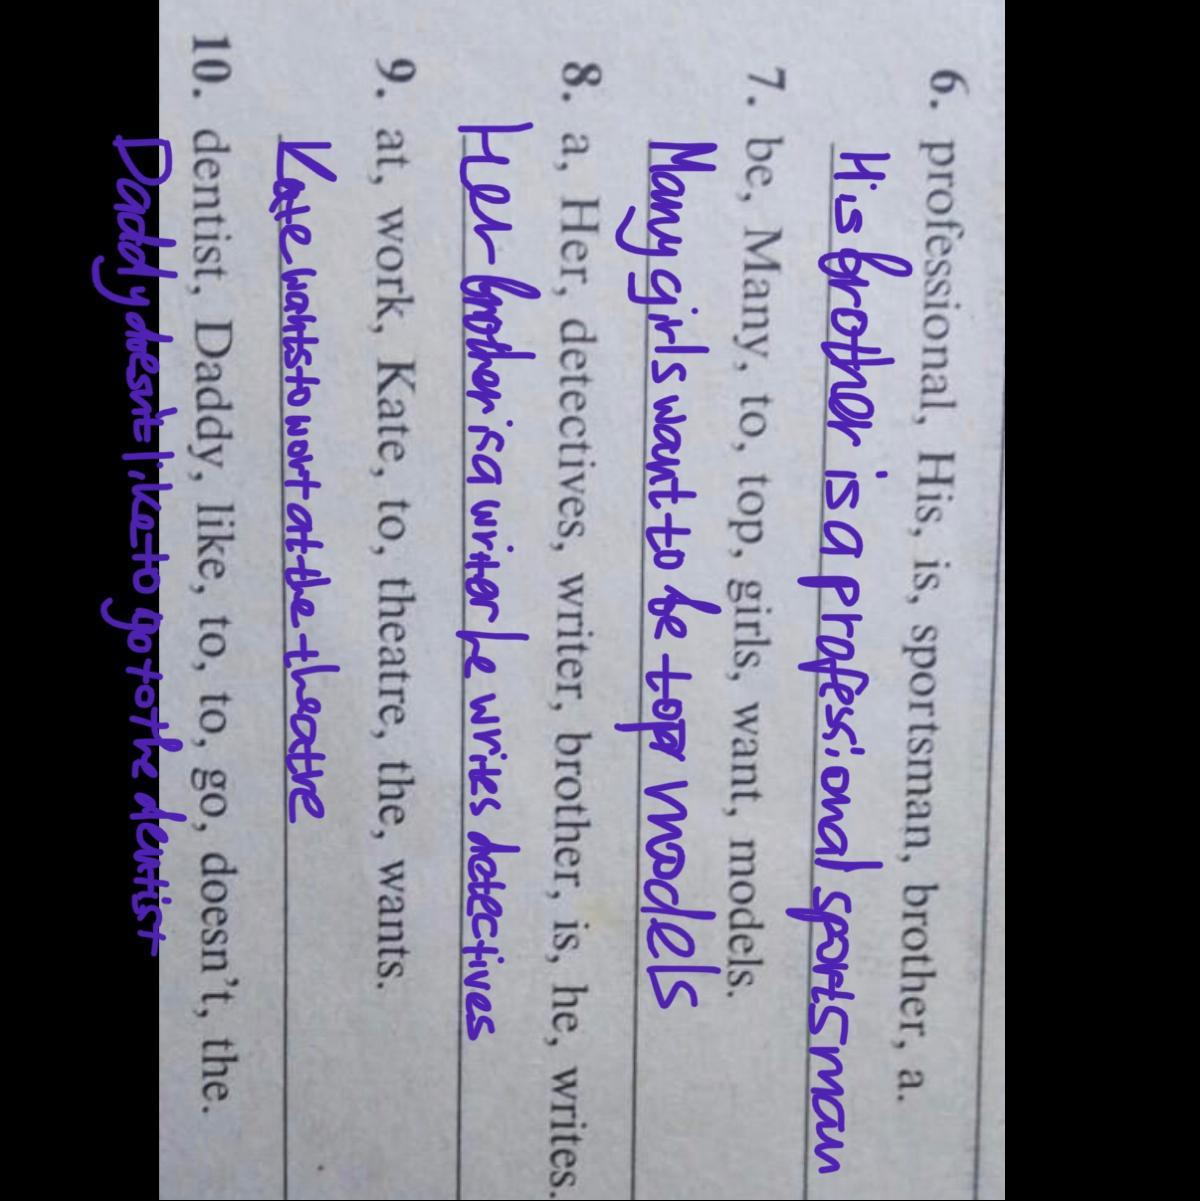 6. professional, His, is, sportsman, brother, a.
His brother is a professional sportsman
7. be, Many, to, top, girls, want, models.
Many girls want to be top models
8. a, Her, detectives, writer, brother, is, he, writes.
Her brother is a writer he writes detectives
9. at, work, Kate, to, theatre, the, wants.
Kate wants to work at the theatre
10. dentist, Daddy, like, to, to, go, doesn't, the.
Daddy doesn't like to go to the dentist